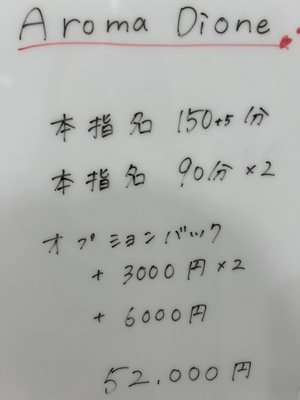 Aroma Dione.
本指名 150+5分
本指名 90分×2
オプションバック
+ 3000円×2
+ 6000円
52.000円